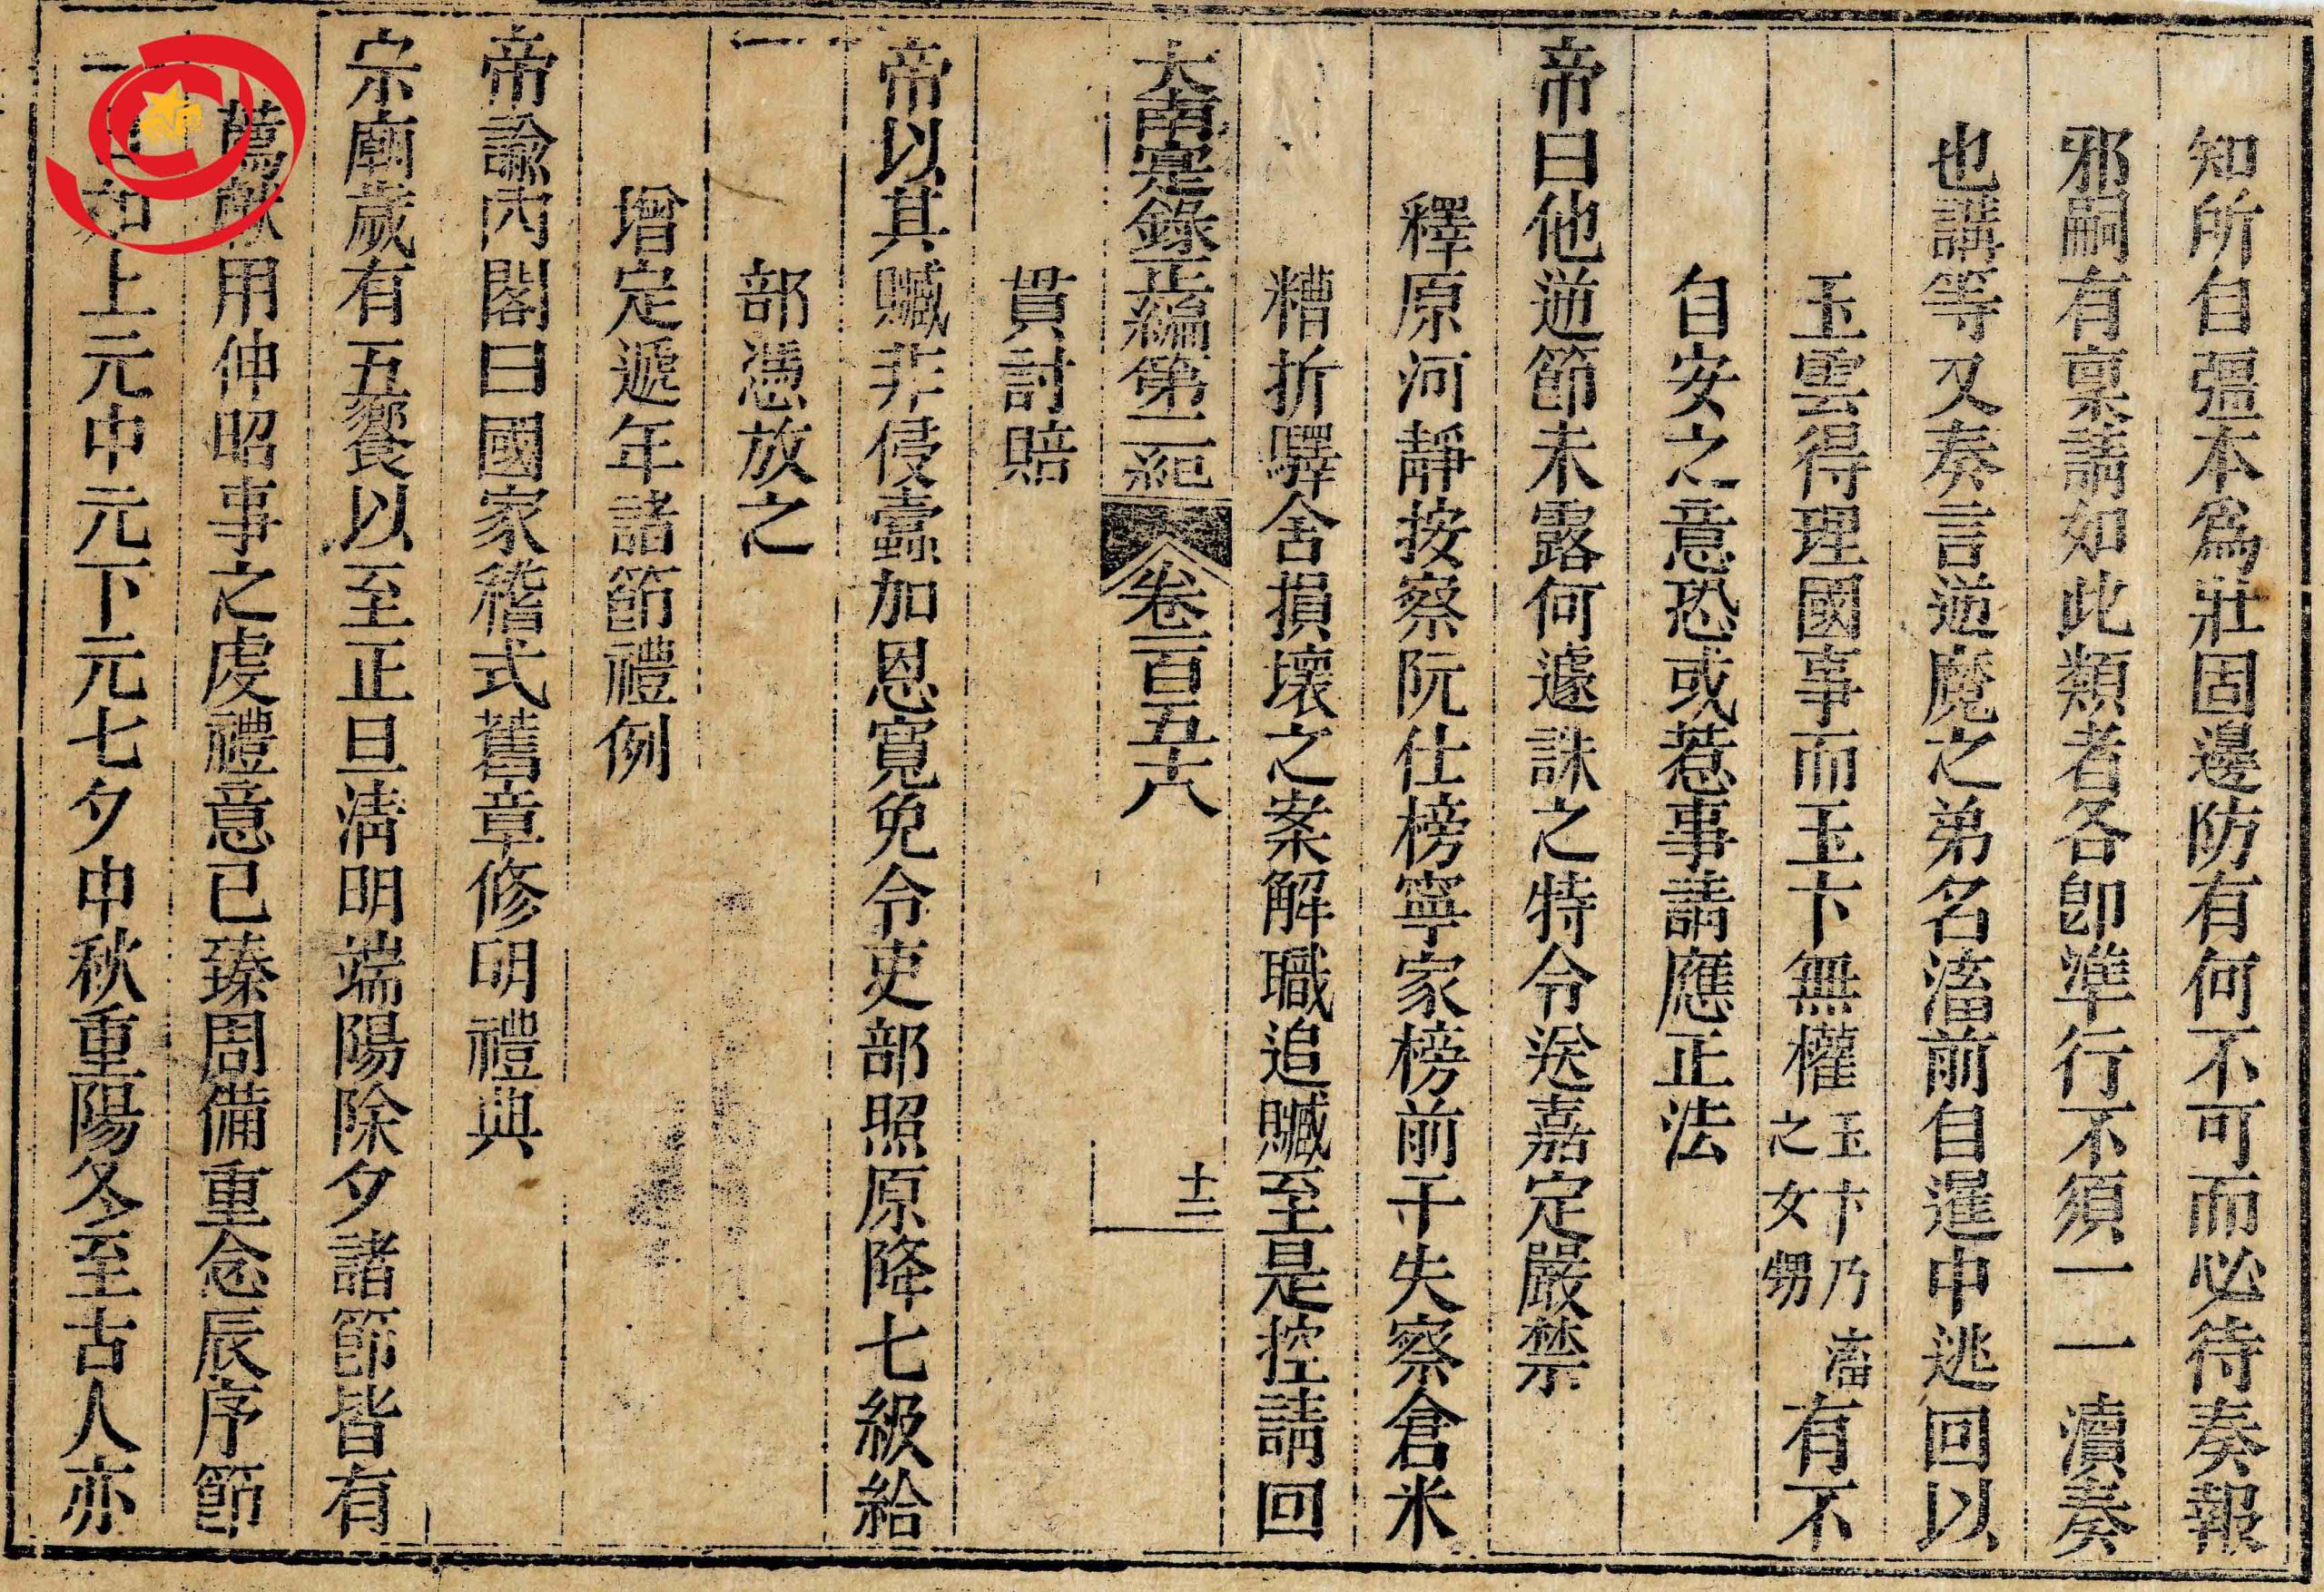 知所自强本為壯固邊防有何不可而必待奏報
邪嗣有稟請如此類者各卽準行不須一一瀆奏
也講等又奏言逆魔之弟名滀前自暹中逃回以
玉雲得理國事而玉卞無權玉卞乃滀之女甥有不
自安之意恐或惹事請應正法
帝曰他逆節未露何遽誅之特令送嘉定嚴禁
釋原河靜按察阮仕榜寧家榜前于失察倉米
糟折驛舍損壞之案解職追贓至是控請回
大南寔錄正編第二紀 卷一百五十八 十二
貫討賠
帝以其贓非侵蠹加恩寬免令吏部照原降七級給
一部憑放之
增定遞年諸節禮例
帝諭內閣曰國家稽式舊章修明禮典
宗廟歲有五饗以至正旦清明端陽除夕諸節皆有
薦獻用伸昭事之虔禮意已臻周備重念辰序節
如上元中元下元七夕中秋重陽冬至古人亦